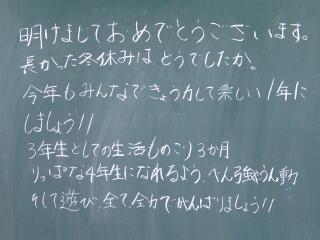 明けましておめでとうございます。
長かった冬休みはどうでしたか。
今年もみんなできょう力して楽しい1年に
しましょう!!
3年生としての生活ものこり3か月
りっぱな4年生になれるよう、べん強やうん動
そして遊び、全て全力でがんばりましょう!!